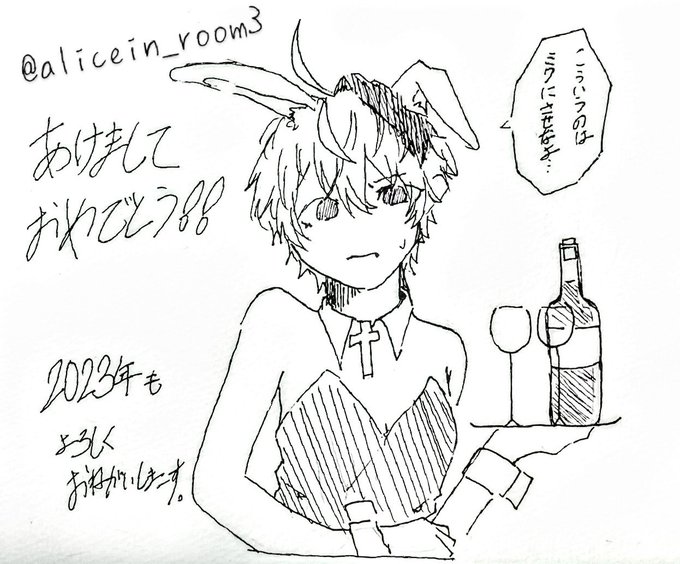 @alicein_room3
あけまして
おめでとう!!
こういうのは
ミクにさせなよ…
2023年も
よろしく
おねがいします。